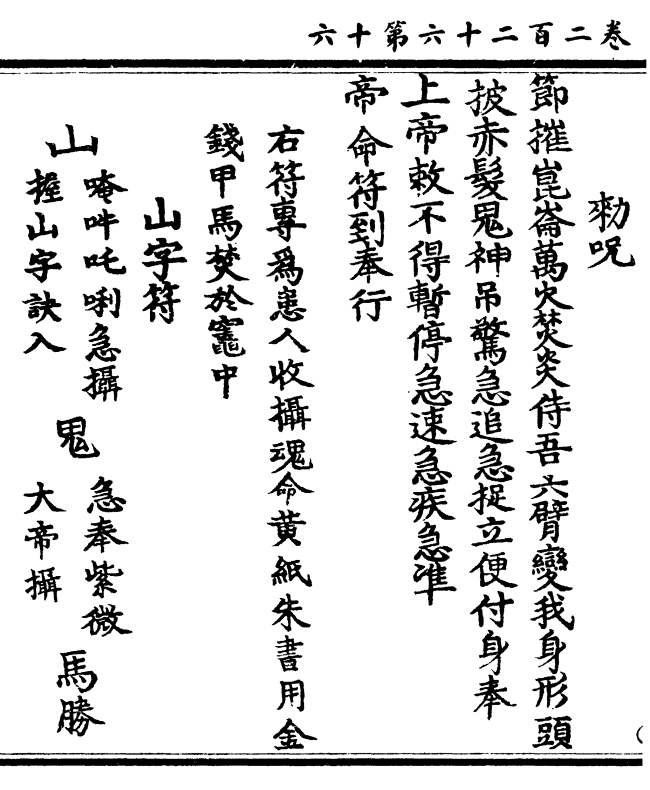 卷二百二十六第十六
勑咒
節摧崑崙萬火焚炎侍吾六臂變我身形頭
披赤髮鬼神吊驚急追急捉立便付身奉
上帝敕不得暫停急速急疾急准
帝命符到奉行
右符專爲患人收攝魂命黄紙朱書用金
錢甲馬焚於竈中
山字符
山
唵吽吒唎急攝
握山字訣入
鬼
急奉紫微
大帝攝
馬勝